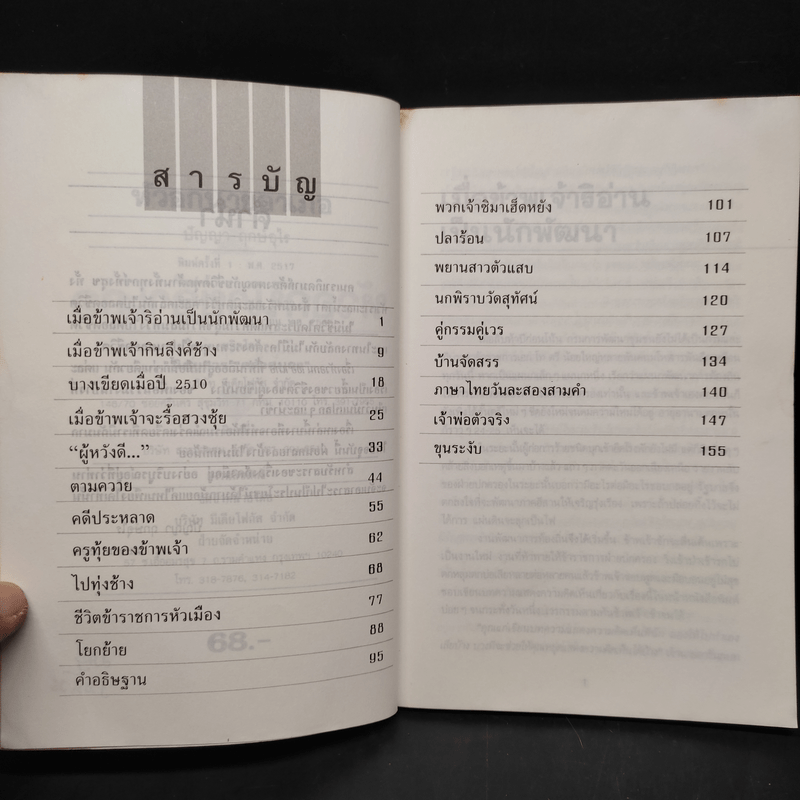 สารบัญ
เมื่อข้าพเจ้าริอ่านเป็นนักพัฒนา 1
เมื่อข้าพเจ้ากินลึงค์ช้าง 9
บางเขียดเมื่อปี 2510 18
เมื่อข้าพเจ้าจะรื้อฮวงซุ้ย 25
“ผู้หวังดี...” 33
ตามควาย 44
คดีประหลาด 55
ครูทุ้ยของข้าพเจ้า 62
ไปทุ่งช้าง 68
ชีวิตข้าราชการหัวเมือง 77
โยกย้าย 88
คำอธิษฐาน 95
พวกเจ้าซิมาเฮ็ดหยัง 101
ปลาร้อน 107
พยานสาวตัวแสบ 114
นกพิราบวัดสุทัศน์ 120
คู่กรรมคู่เวร 127
บ้านจัดสรร 134
ภาษาไทยวันละสองสามคำ 140
เจ้าพ่อตัวจริง 147
ขุนระงับ 155